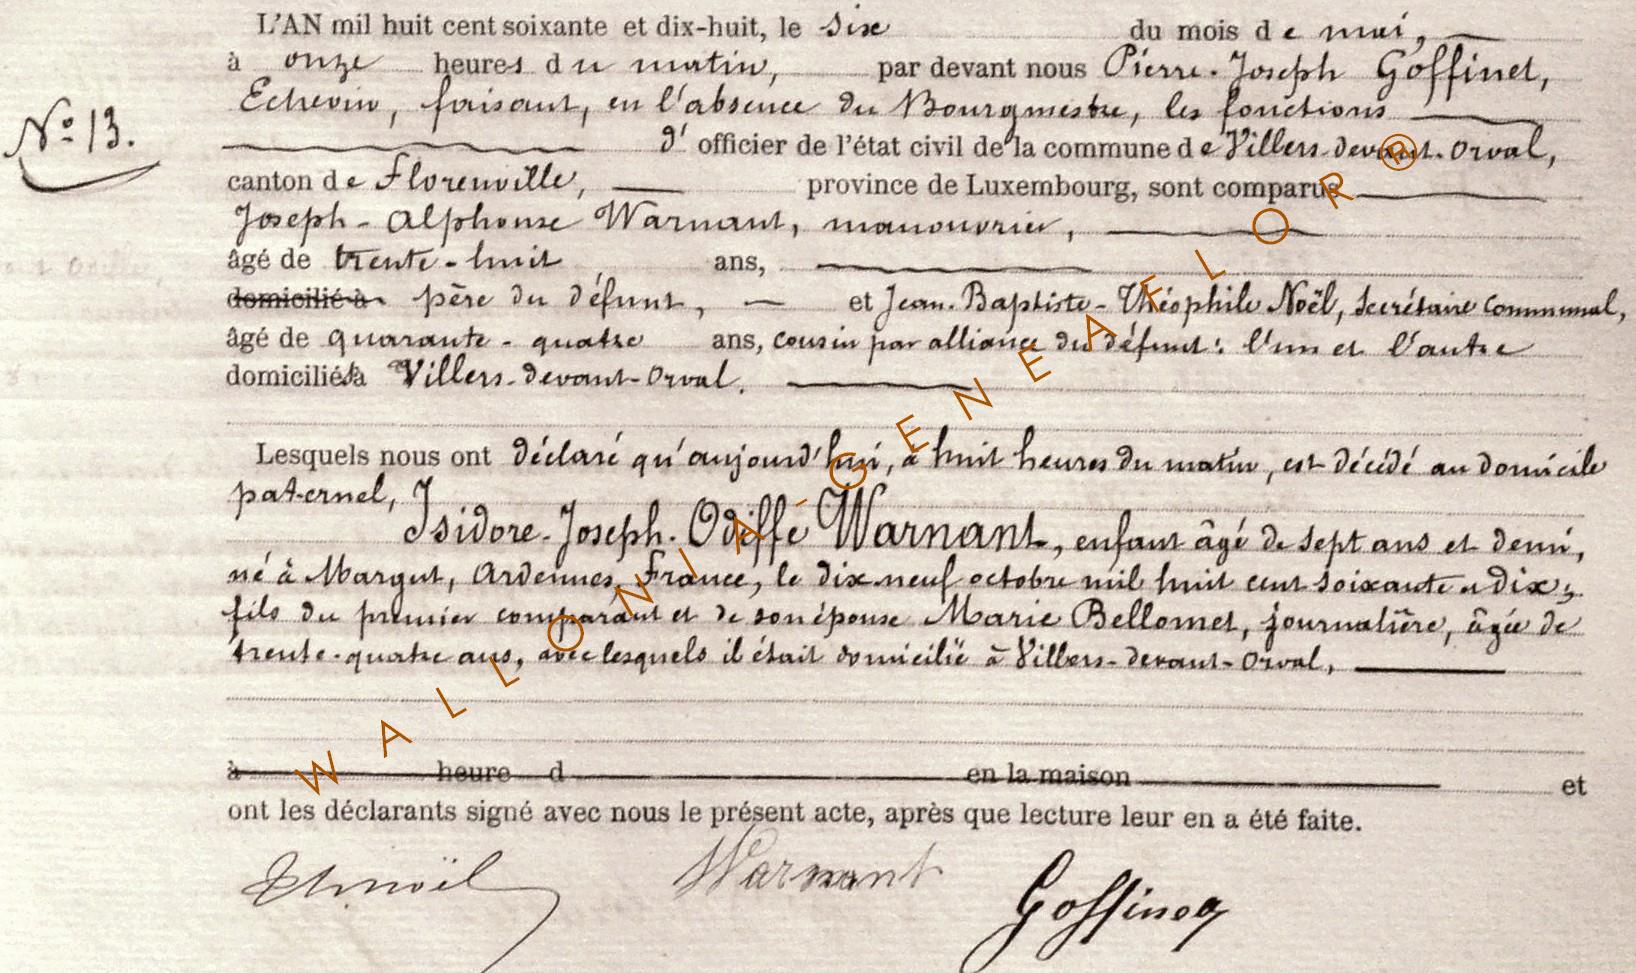 L'AN mil huit cent soixante et dix-huit, le six du mois de mai,
à onze heures du matin, par devant nous Pierre-Joseph Goffinet,
Echevin, faisant, en l'absence du Bourgmestre, les fonctions
N° 13.
d'officier de l'état civil de la commune de Villers-devant-Orval,
canton de Florenville, province de Luxembourg, sont comparus
Joseph-Alphonse Warnant, manouvrier,
âgé de trente-huit ans,
domicilié à père du défunt, et Jean-Baptiste-Théophile Noël, secrétaire communal,
âgé de quarante-quatre ans, cousin par alliance du défunt: l'un et l'autre
domiciliés à Villers-devant-Orval.
Lesquels nous ont déclaré qu'aujourd'hui, à huit heures du matin, est décédé au domicile
paternel,
Isidore-Joseph- Warnant, enfant âgé de sept ans et demi,
né à Margut, Ardennes, France, le dix-neuf octobre mil huit cent soixante et dix,
fils du premier comparant et de son épouse Marie Bellomet, journalière, âgée de
trente-quatre ans, avec lesquels il était domicilié à Villers-devant-Orval,
à heure d en la maison et
ont les déclarants signé avec nous le présent acte, après que lecture leur en a été faite.
Th. Noël Warnant Goffinet
WALLONIA-GENEAFLOR®